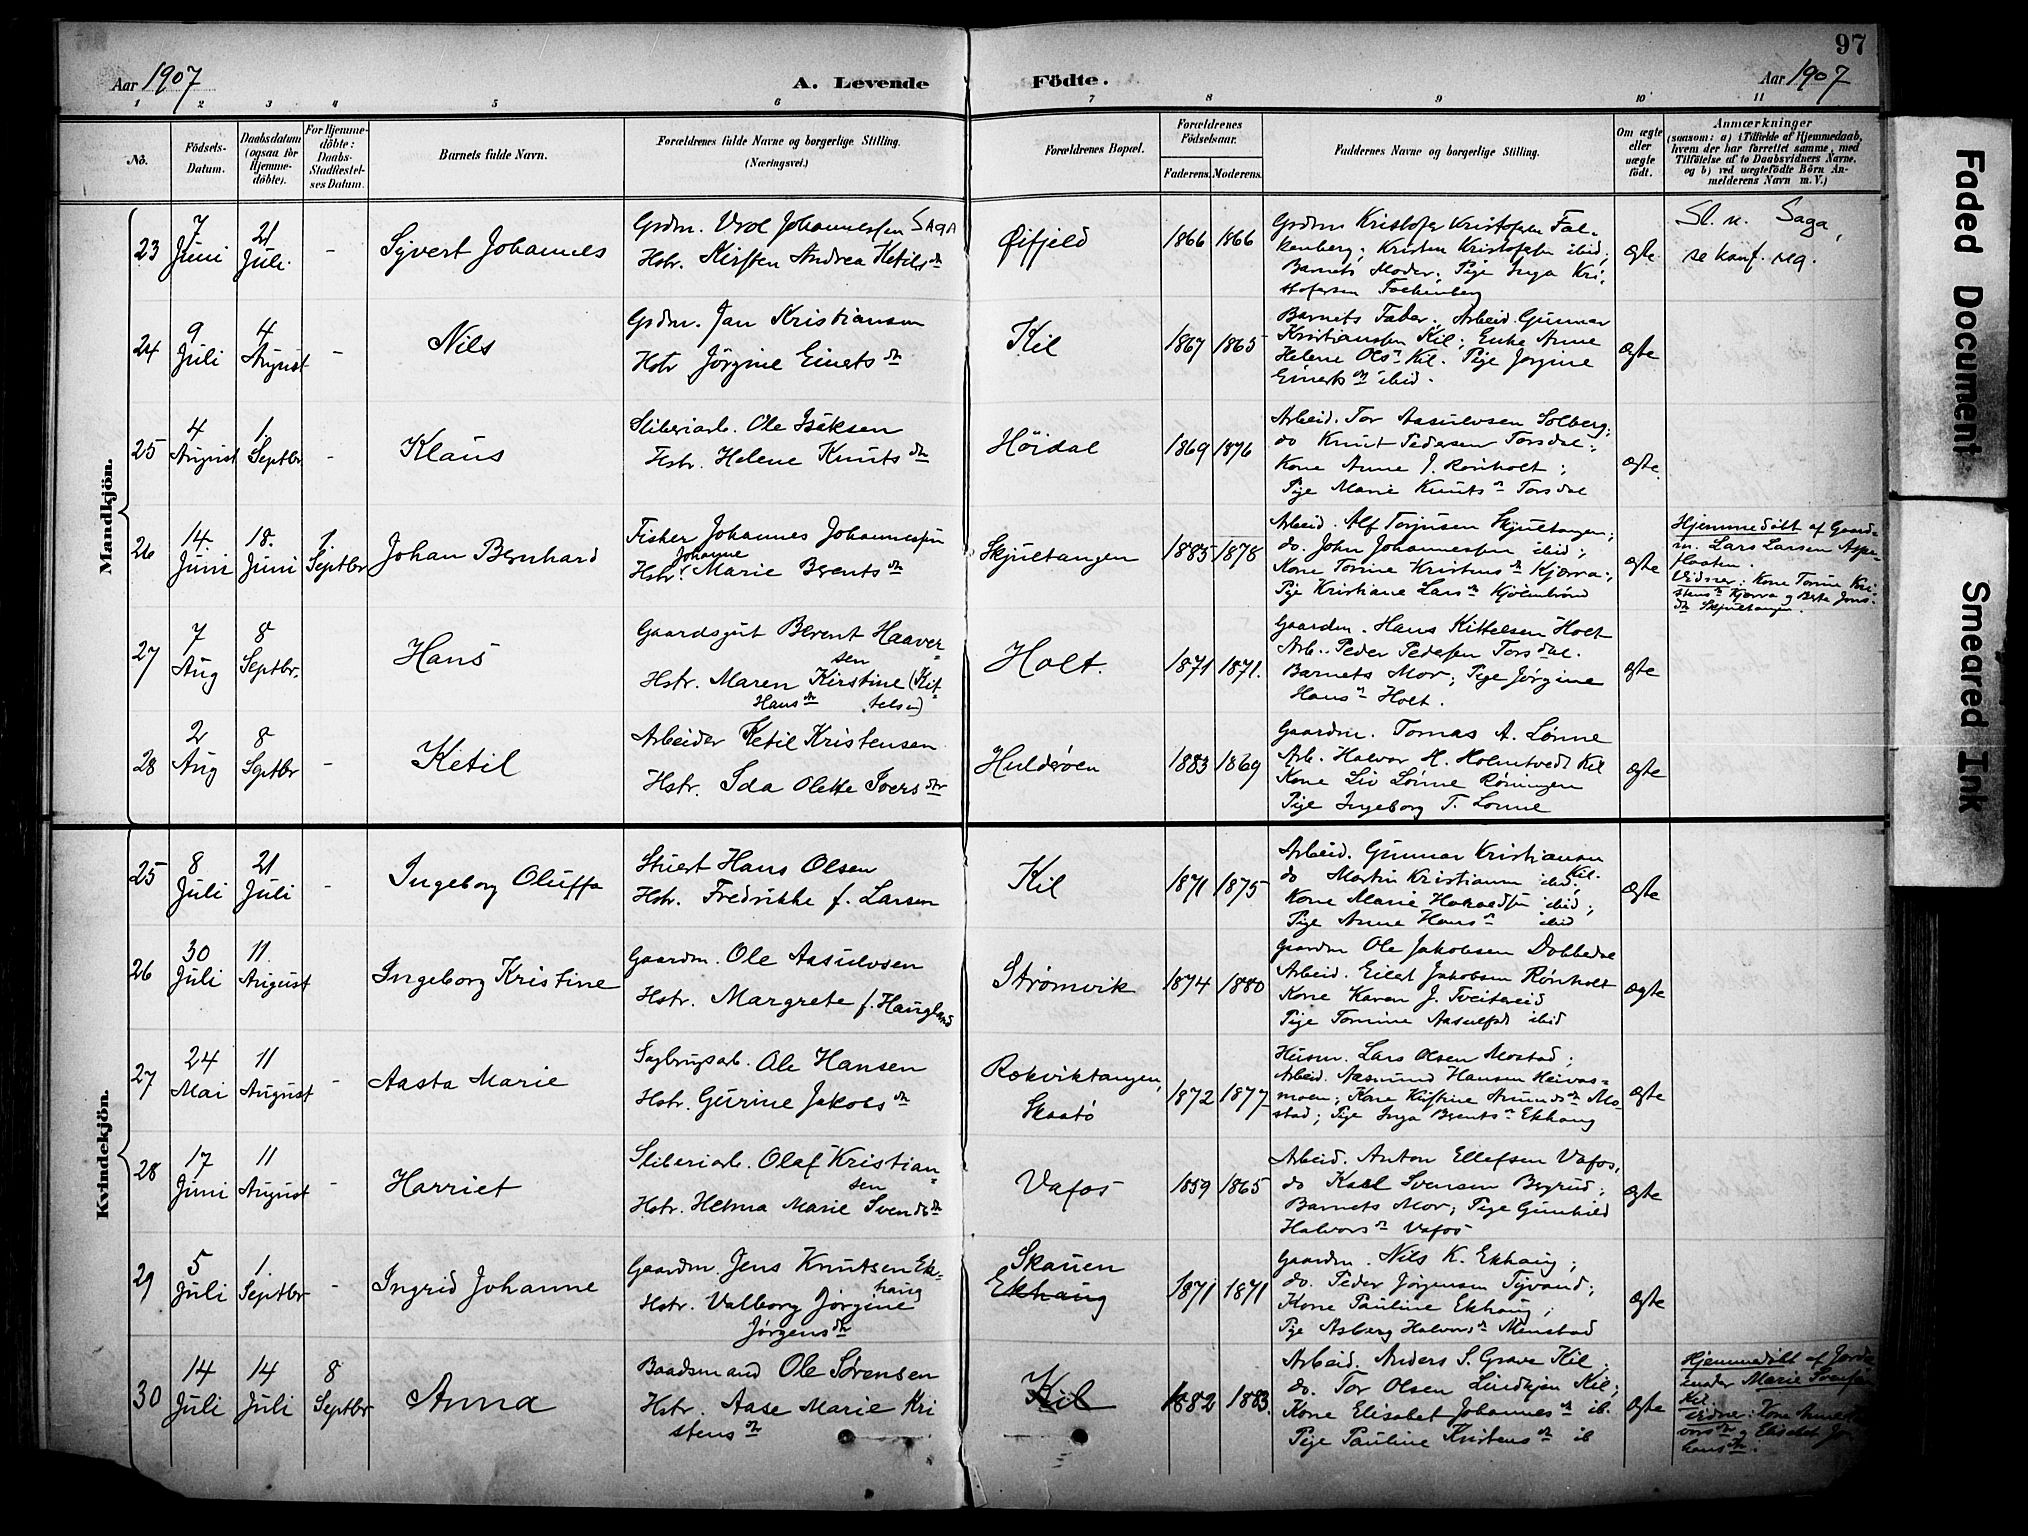 97
Aar 1907
A. Levende Födte.
Aar 1907
1 2 3 4 5 6 7 8 9 10 11
No.
Födsels-
Datum.
Daabsdatum
(ogsaa for
Hjemme-
döbte).
For Hjemme-
döbte:
Daabs-
Stadfæstel-
ses Datum.
Barnets fulde Navn.
Forældrenes fulde Navne og borgerlige Stilling.
(Næringsvei.)
Forældrenes Bopæl.
Forældrenes
Födselsaar.
Faderens. Moderens.
Faddernes Navne og borgerlige Stilling.
Om ægte
eller
uægte
födt.
Anmærkninger
(saasom: a) i Tilfælde af Hjemmedaab,
hvem der har forrettet samme, med
Tilföielse af to Daabsvidners Navne,
og b) ved uægtefödte Börn An-
melderens Navn m. V.)
Mandkjön.
23
7
Juni
21
Juli
-
Syvert Johannes
Grdm. Vrol Johannessen SAGA
Hstr. Kirsten Andrea Ketilsdtr
Øifjeld
1866 1866
Grdm Kristofer Kristofersen Fal-
kenberg; Kristen Kristofersen ibid;
Barnets Moder. Pige Inga Kri-
stofersen Falkenberg
ægte
Sl. n. Saga,
se konf. reg.
24
9
Juli
4
August
-
Nils
Grdm. Jan Kristiansen
Hstr Jørgine Einertsdtr
Kil
1867 1865
Barnets Fader. Arbeid. Gunnar
Kristianssen Kil; Enke Anne
Helene Olsdtr Kil. Pige Jørgine
Einertsdtr ibid.
ægte
25
4
August
1
Septbr
-
Klaus
Sliberiarb. Ole Isaksen
Hstr. Helene Knutsdtr
Høidal
1869 1876
Arbeid. Tor Aasulvsen Solberg;
do Knut Pedersen Torsdal;
Kone Anne J. Rønholt;
Pige Marie Knutsdtr Torsdal
ægte
26
14
Juni
18
Juni
1
Septbr
Johan Bernhard
Fisker Johannes Johannessen
Johanne
Hstr. Marie Berentsdtr
Skjultangen
1885 1878
Arbeid. Alf Torjusen Skjultangen;
do. John Johannessen ibid;
Kone Tomine Kristensdtr Kjærra;
Pige Kristiane Larsdtr Kjølebrønd
ægte
Hjemmedöbt af Gaard-
m. Lars Larsen Aspe-
flaaten.
Vidner: Kone Tomine Kri-
stensdtr Kjærra og Berte Jens-
dtr Skjultangen.
27
7
Aug
8
Septbr.
Hans
Gaardsgut Berent Haaver-
sen
Hstr. Maren Kirstine (Kit-
Hansdtr telsen)
Holt.
1871 1871.
Gaardm. Hans Kittelsen Holt
Arb. Peder Pedersen Torsdal.
Barnets Mor; Pige Jørgine
Hansdtr Holt.
ægte
28
2
Aug
8
Septbr
-
Ketil
Arbeider Ketil Kristensen
Hstr. Ida Olette Iversdtr
Hulderøen
1883 1869
Gaardm. Tomas A. Lønne
Arb. Halvor H. Holmtvedt Kil
Kone Liv Lønne Røningen
Pige Ingeborg T. Lønne
ægte
Kvindekjön.
25
8
Juli
21
Juli
-
Ingeborg Oluffa
Stuert Hans Olsen
Hstr. Fredrikke f. Larsen
Kil
1871 1875
Arbeid. Gunnar Kristiansen
Kil.
do Martin Kristiansen ibid;
Kone Marie Haraldsen ibid;
Pige Anne Hansdtr ibid
ægte
26
30
Juli
11
August
Ingeborg Kristine
Gaardm. Ole Aasulvsen
Hstr. Margrete f. Haugland
Strømvik
1874 1880
Gaardm Ole Jakobsen Dobbedal
Arbeid. Eilet Jakobsen Rønholt
Kone Karen J. Tveitereid
Pige Tomine Aasulfsd ibid
ægte
27
24
Mai
11
August
-
Aasta Marie
Sagbrugsarb. Ole Hansen
Hstr. Gurine Jakobsdtr
Rækviktangen,
Skaatø
1872 1877
Husm. Lars Olsen Mostad;
Arbeid. Aasmund Hansen Heivas-
moen; Kone Kirstine Amundsdtr Mo-
stad; Pige Inga Berentsdtr Ekhaug
ægte
28
17
Juni
11
August
-
Harriet
Sliberiarb. Olaf Kristian-
sen
Hstr. Helma Marie Svendsdtr
Vafos
1859 1865
Arbeid. Anton Ellefsen Vafos,
do Karl Svensen Bøgrud;
Barnets Mor; Pige Gunhild
Halvorsdtr Vafos
ægte
29
5
Juli
1
Septbr
-
Ingrid Johanne
Gaardm. Jens Knutsen Ek-
haug
Hstr. Valborg Jørgine
Jørgensdtr
Skauen
Ekhaug
1871 1871
Gaardm. Nils K. Ekhaug;
do. Peder Jørgensen Tyvand;
Kone Pauline Ekhaug;
Pige Asberg Halvorsdtr Menstad
ægte
30
14
Juli
14
Juli
8
Septbr
Anna
Baadsmand Ole Sørensen
Hstr. Aase Marie Kri
stensdtr
Kil
1882 1883.
Arbeid. Anders S. Grave Kil;
do. Tor Olsen Lindkjen Kil;
Kone Elisabet Johannesdtr ib.
Pige Pauline Kristensdtr ib
ægte
Hjemmedöbt af Jorde-
moder Marie Svensen
Kil
Vidner: Kone Anne
vorsdtr og Elisabet Jo-
hansdtr.
Faded Document
Smeared Ink